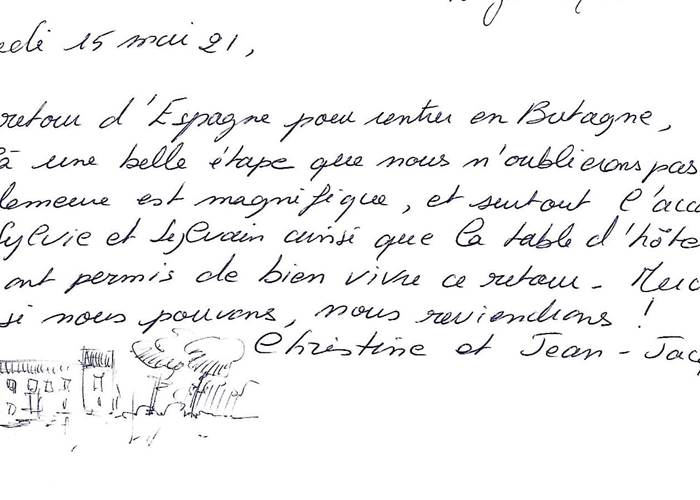 edi 15 mai 21,
retour d'Espagne pour rentrer en Bretagne,
à une belle étape que nous n'oublierons pas
demeure est magnifique, et surtout l'acc
Sylvie et Sylvain ainsi que la table d'hôte
ont permis de bien vivre ce retour. Merc
si nous pouvons, nous reviendrons !
Christine et Jean-Jacq